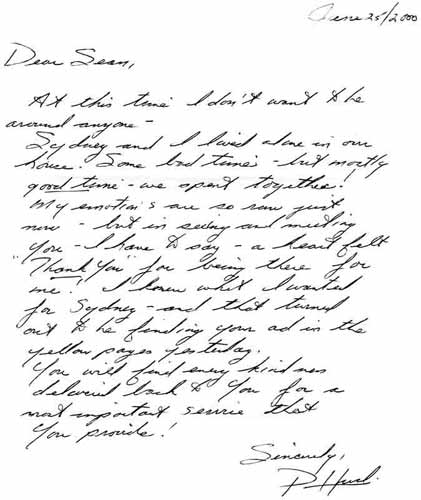 June 25/2000
Dear Sean,
At this time I don't want to be
around anyone -
Sydney and I lived alone in our
house. Some bad times - but mostly
good time - we spent together!
My emotion's are so raw just
now - but in seeing and meeting
You - I have to say - a heart felt
"Thank You" for being there for
me! I knew what I wanted
for Sydney - and that turned
out to be finding your ad in the
yellow pages yesterday.
You will find every kindness
delivered back to You for a
most important service that
You provide!
Sincerely,
P.